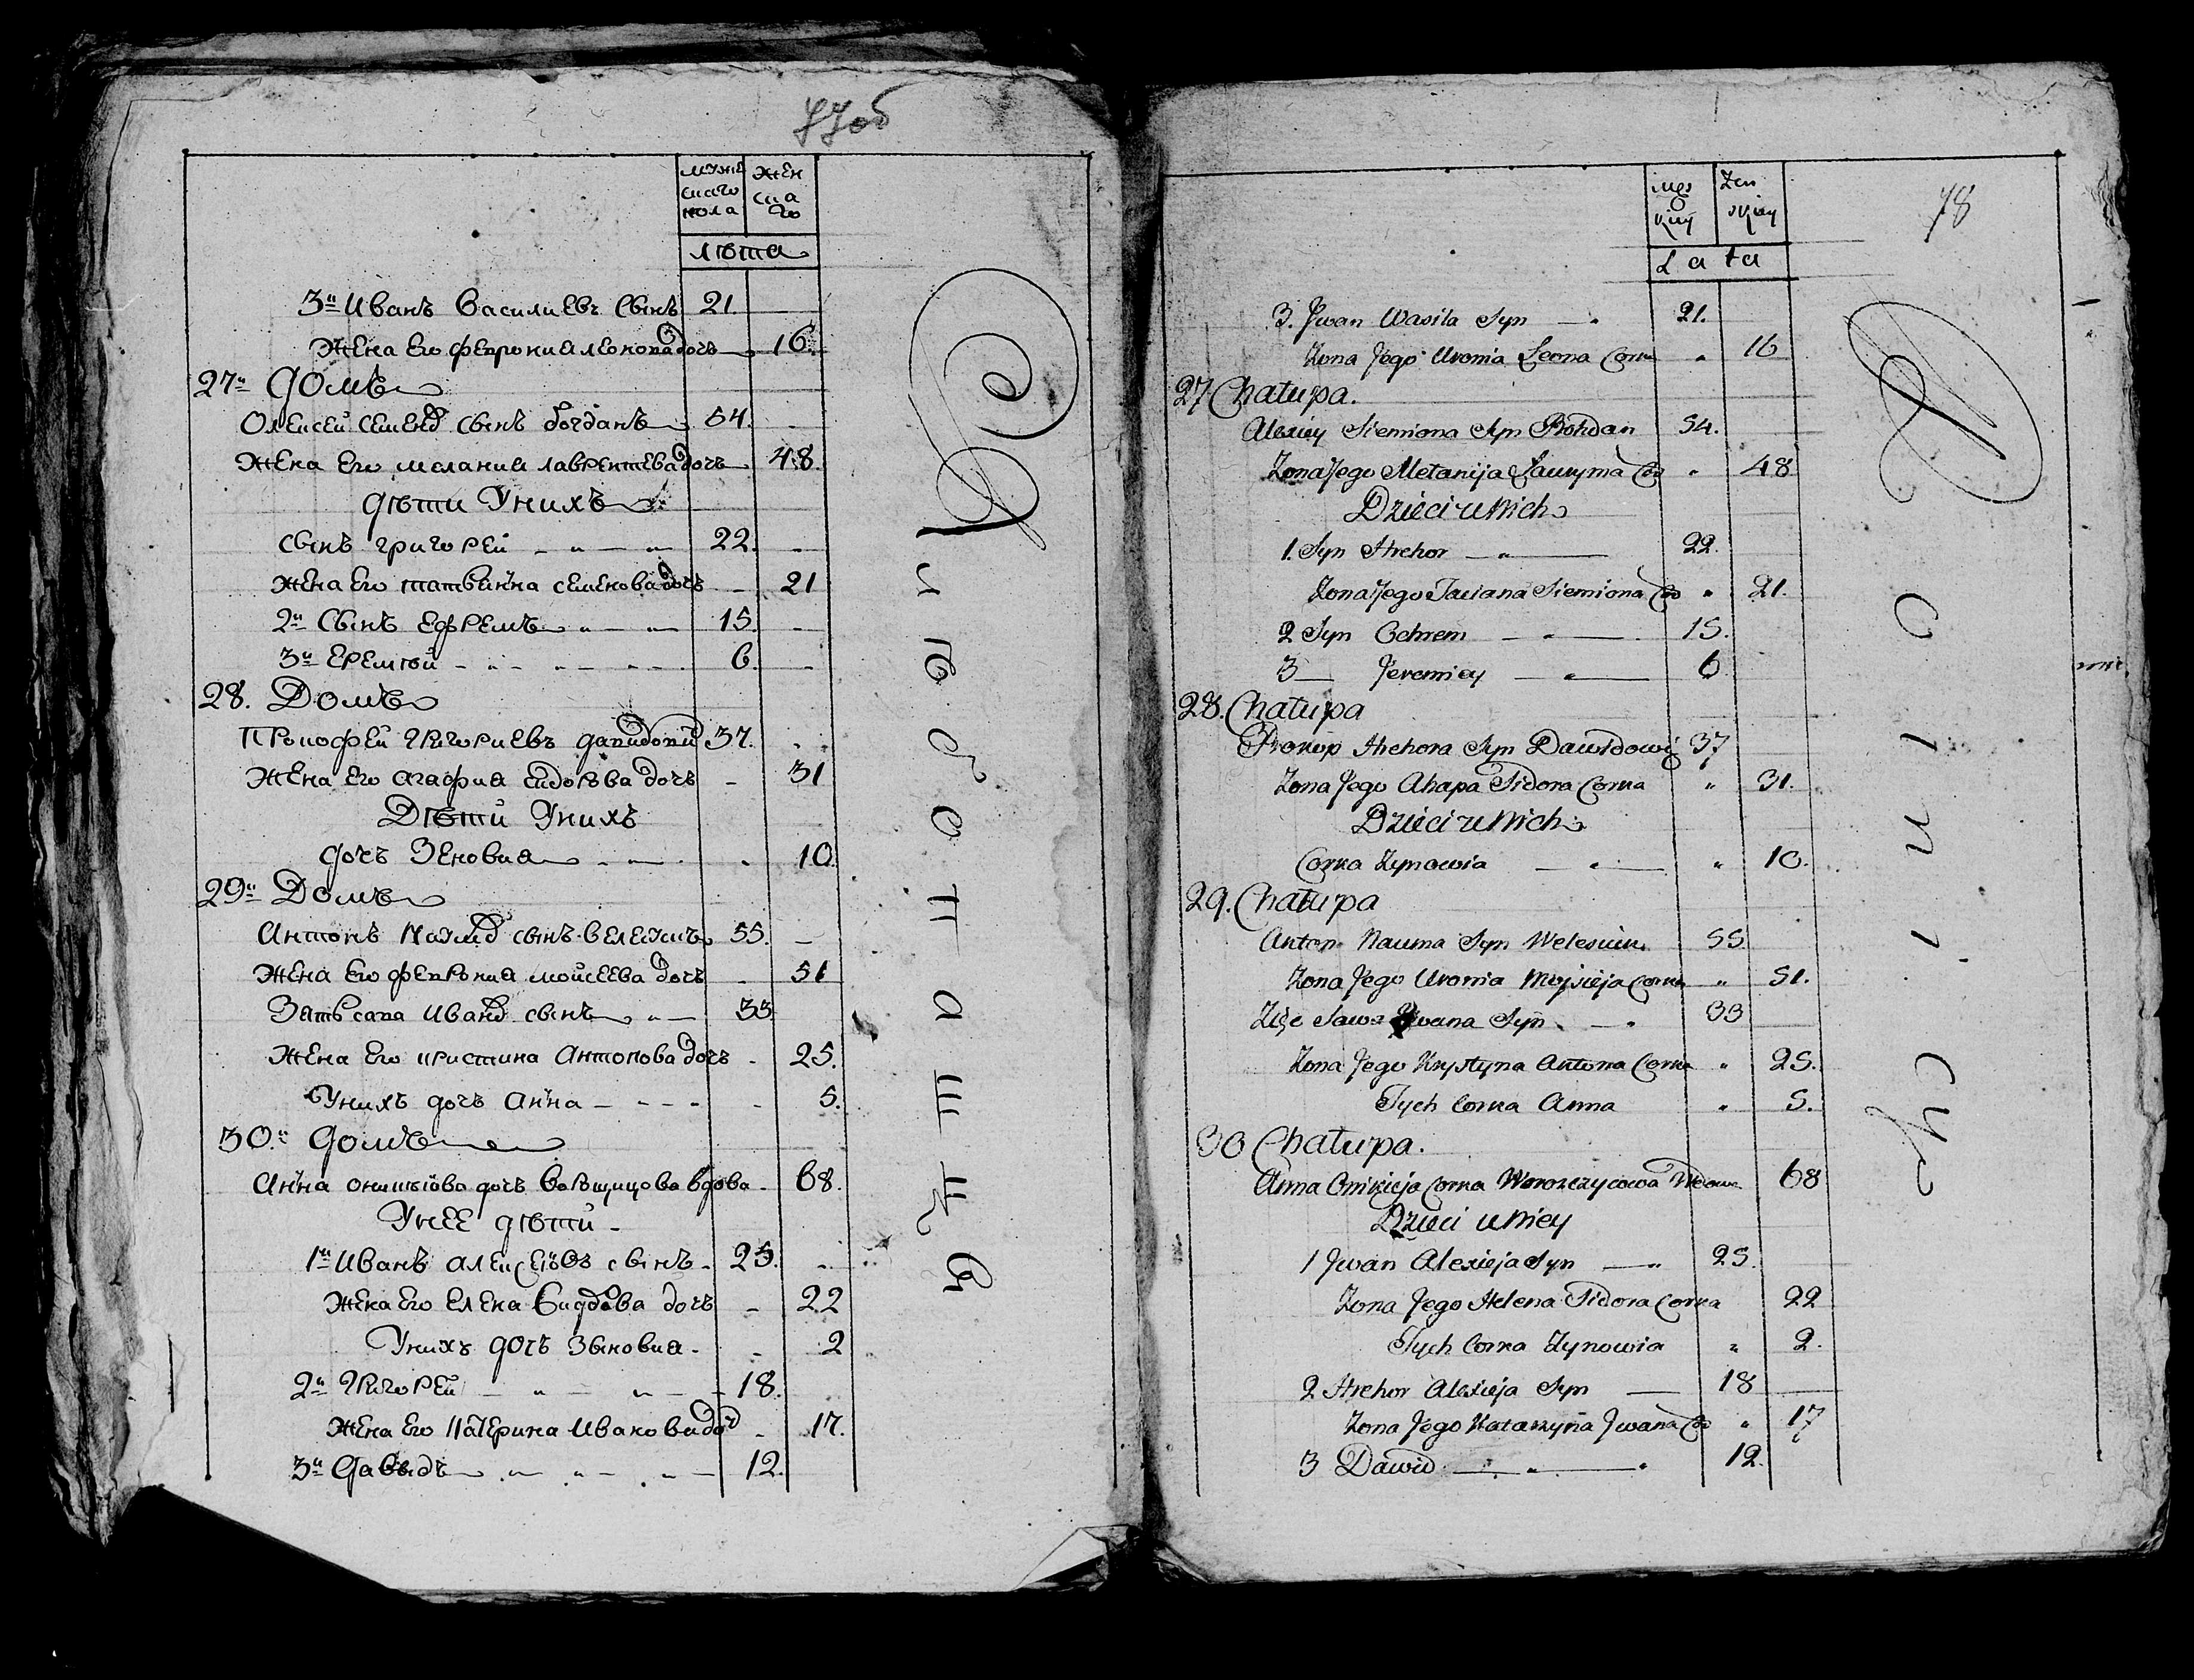 77об
мужескаго пола женскаго
лѣта
3й Иванъ Василиевъ Сынъ 21.
Жена Его феврониа леонова дочь 16.
27й Домъ
Олексей Семенов сынъ богданъ 54.
Жена Его мелания лаврентева дочь 48.
дѣти Унихъ
сынъ григорей 22.
жена Его татьянна семенова дочь 21
2й Сынъ Ефремъ 15.
3й Еремѣй 6.
28. Домъ
Прокофей григориевъ давидович 37.
Жена Его агафия сидорова дочь 31
Дѣти Унихъ
дочь Зеновиа 10.
29й Домъ
Антонъ Наумов сынъ
Жена Его феврония мойсеева дочь 51
55.
Зять сава иванов сынъ 33
Жена Его кристина Антонова дочь 25.
Унихъ дочь Анна 5.
30й домъ
Анна дочь вдова 68.
Унее дѣти
1й Иванъ Алексеювъ сынъ 25.
Жена Его Елена Сидорова дочь 22
Унихъ дочь Зыновиа 2
2й Григорей 18.
Жена Его Катерина Иванова доч 17.
3й Давыдъ 12.
78
męskiey Zenskiey
Lata
3. Jwan Wasila Syn 21.
Zona Jego Uronia Leona Corka 16
27 Chałupa.
Alexiey Siemiona Syn Bohdan 54.
Zona Jego Melanija Ławryna Co 48
Dzieci u Nich
1. Syn Hrehor 22.
Zona Jego Taciana Siemiona Co 21.
2 Syn Ochrem 15.
3 Jeremiey 6
28. Chałupa
Prokop Hrehora Syn Dawidowi 37
Zona Jego Ahapa Sidora Corka 31.
Dzieci u Nich
Corka Zynowia 10.
29. Chałupa
Anton Nauma Syn 55
Zona Jego Uronia Moysieja Corka 51.
Zięc Sawa Jwana Syn 33
Zona Jego Krystyna Antona Corka 25.
Tych Corka Anna 5.
30 Chałupa.
Anna Onikieja Corka Worozczycowa Wdowa 68
Dzieci u Niey
1 Jwan Alexieja Syn 25.
Zona Jego Helena Sidora Corka 22
Tych Corka Zynowia 2.
2 Hrehor Alexieja Syn 18
Zona Jego Katarzyna Jwana Co 17
3 Dawid 12.